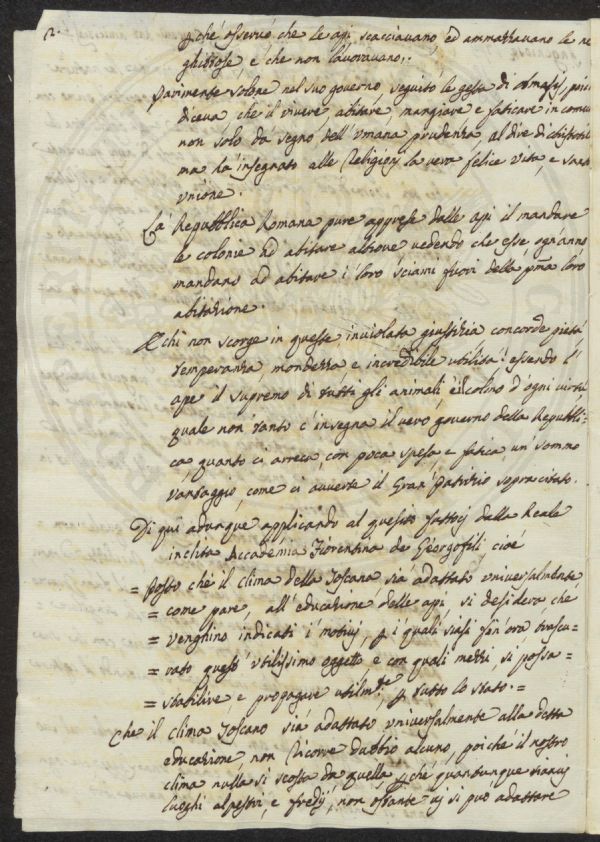 2.
p̱chè osservò che le api scacciavano, ed ammazzavano le ne
ghittose, e che non lavoravano.
Parimente Solone nel suo governo, seguitò le gesta di Amasij, poichè
diceva, che il vivere, abitare, mangiare e faticare in comu
non solo dà segno dell'umana prudenza al dire di
ma ha insegnato alle Religioni la vera felice vita, e santa
unione.
La Repubblica Romana pure apprese dalle api il mandare
le colonie ad abitare altrove vedendo che esse ogn'anno
mandano ad abitare i loro sciami fuori della pṁa loro
abitazione.
E chi non scorge in queste, inviolata giustizia concorde pietà
temperanza, mondezza e incredibile utilità! essendo l'
ape il supremo di tutti gli animali, è il colmo d'ogni virtù
quale non tanto c'insegna il vero governo della Repubbli-
ca, quanto ci arreca, con poca spesa, e fatica, un sommo
vantaggio, come ci avverte il Gran Patrizio sopracitato.
Di qui adunque applicando al quesito fattoci dalla Reale
inclita Accademia Fiorentina de Georgofili, cioè
= Posto che il clima della Toscana sia adattato universalmente,
= come pare, all'educazione delle api, si desidera, che
= venghino indicati i motivi, p̱ i quali siasi fin'ora trascu-
= rato questo utilissimo oggetto e con quali mezzi, si possa =
= stabilire, e propagare utilmte p̱ tutto lo stato. =
Che il clima Toscano sia adattato universalmente alla detta
educazione, non riceve dubbio alcuno, poichè il nostro
clima nulla si scosta da quella p̱chè quantunque sianvi
luoghi alpestri, e fredij, non ostante vi si può adattare